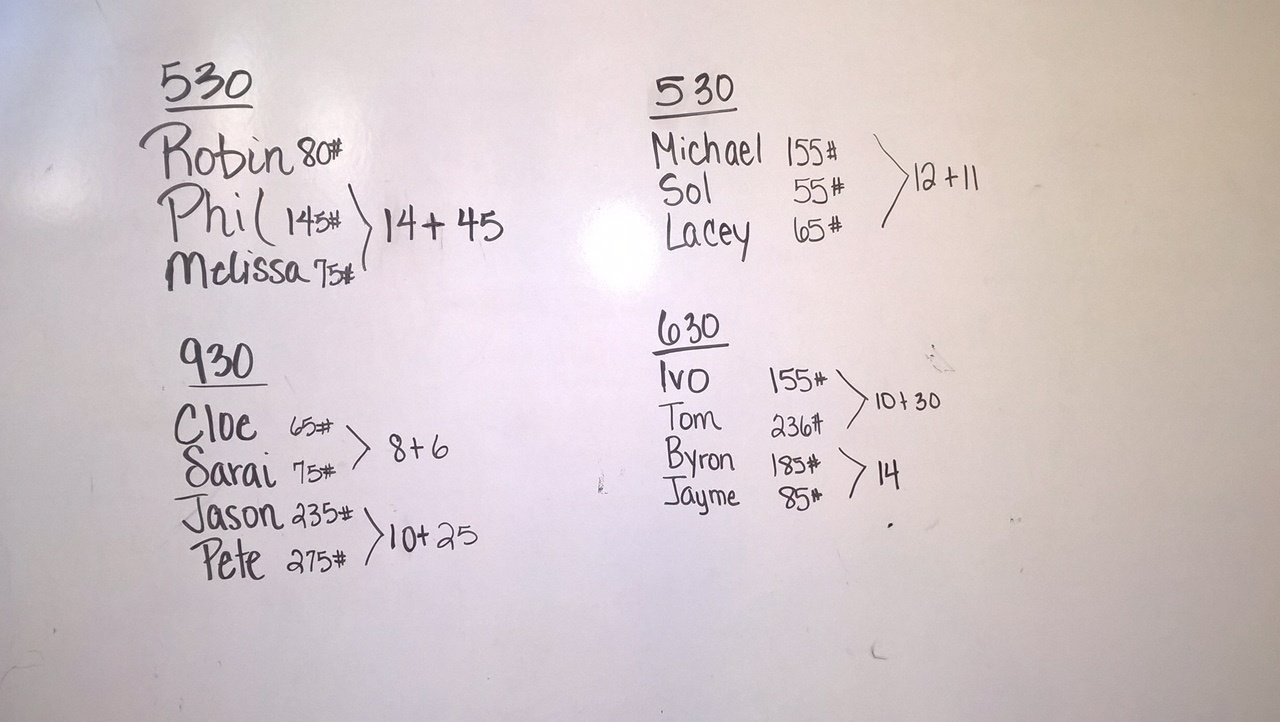 530
Robin 80#
Phil 145#
Melissa 75#
14 + 45
930
Cloe 65#
Sarai 75#
8+6
Jason 235#
Pete 275#
10+25
530
Michael 155#
Sol 55#
Lacey 65#
12+11
630
Ivo 155#
Tom 236#
10+30
Byron 185#
Jayme 85#
14